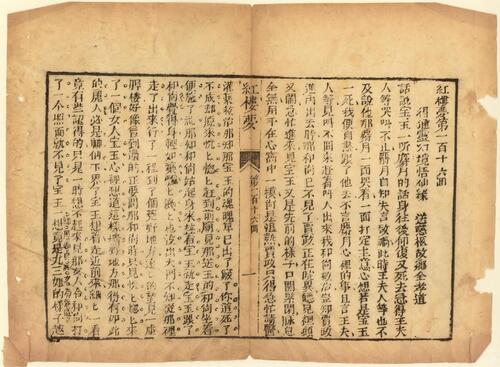 紅樓夢第一百十六回
得通靈幻境悟仙緣　送慈柩故鄉全孝道
話說宝玉一聽麝月的話身往後仰復又死去急得王夫
人等哭叫不止麝月自知失言致禍此時王夫人等也不
及說他那麝月一面哭着一面打定主意心想若是宝玉
一死我便自盡跟了他去不言麝月心裡的事且言王夫
人等見叫不回來赶着叫人出來找和尚救治豈知賈政
進內出去時那和尚已不見了賈政正在詫異聽見裡頭
又鬧急忙進來見宝玉又是先前的樣子口關緊閉脉息
全無用手在心窩中一摸尚是温熱賈政只得急忙請醫
紅樓夢　第一百十六回　一
灌藥救治那知那宝玉的魂魄早已出了竅了你道死了
不成却原來恍恍惚惚赶到前廳見那送玉的和尚坐着
便施了礼那知和尚站起身來拉着宝玉就走宝玉跟了
和尚覺得身輕如葉飄飄颻颻也沒出大門不知從那裡
走了出來行了一程到了個荒野地方遠遠的望見一座
牌樓好像曾到過的正要問那和尚時只見恍恍惚惚來
了一個女人宝玉心裡想道這樣曠野地方那得有如此
的麗人必是神仙下界了宝玉想着走近前來細細一看
竟有些認得的只是一時想不起來見那女人合和尚打
了一個照面就不見了宝玉一想竟是尤三姐的樣子越